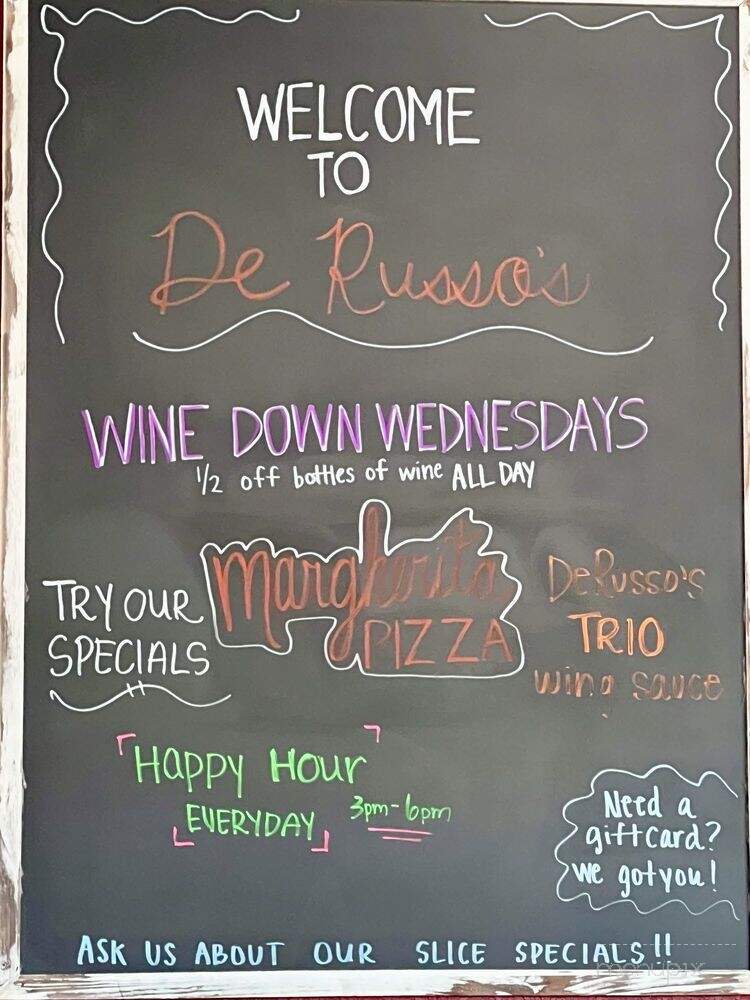 WELCOME
TO
De Russo's
WINE DOWN WEDNESDAYS
1/2 off bottles of wine ALL DAY
TRY OUR
SPECIALS
margherita
PIZZA
DeRusso's
TRIO
wing sauce
Happy Hour
EVERYDAY 3pm-6pm
Need a
giftcard?
we got you!
ASK US ABOUT OUR SLICE SPECIALS!!
menupix